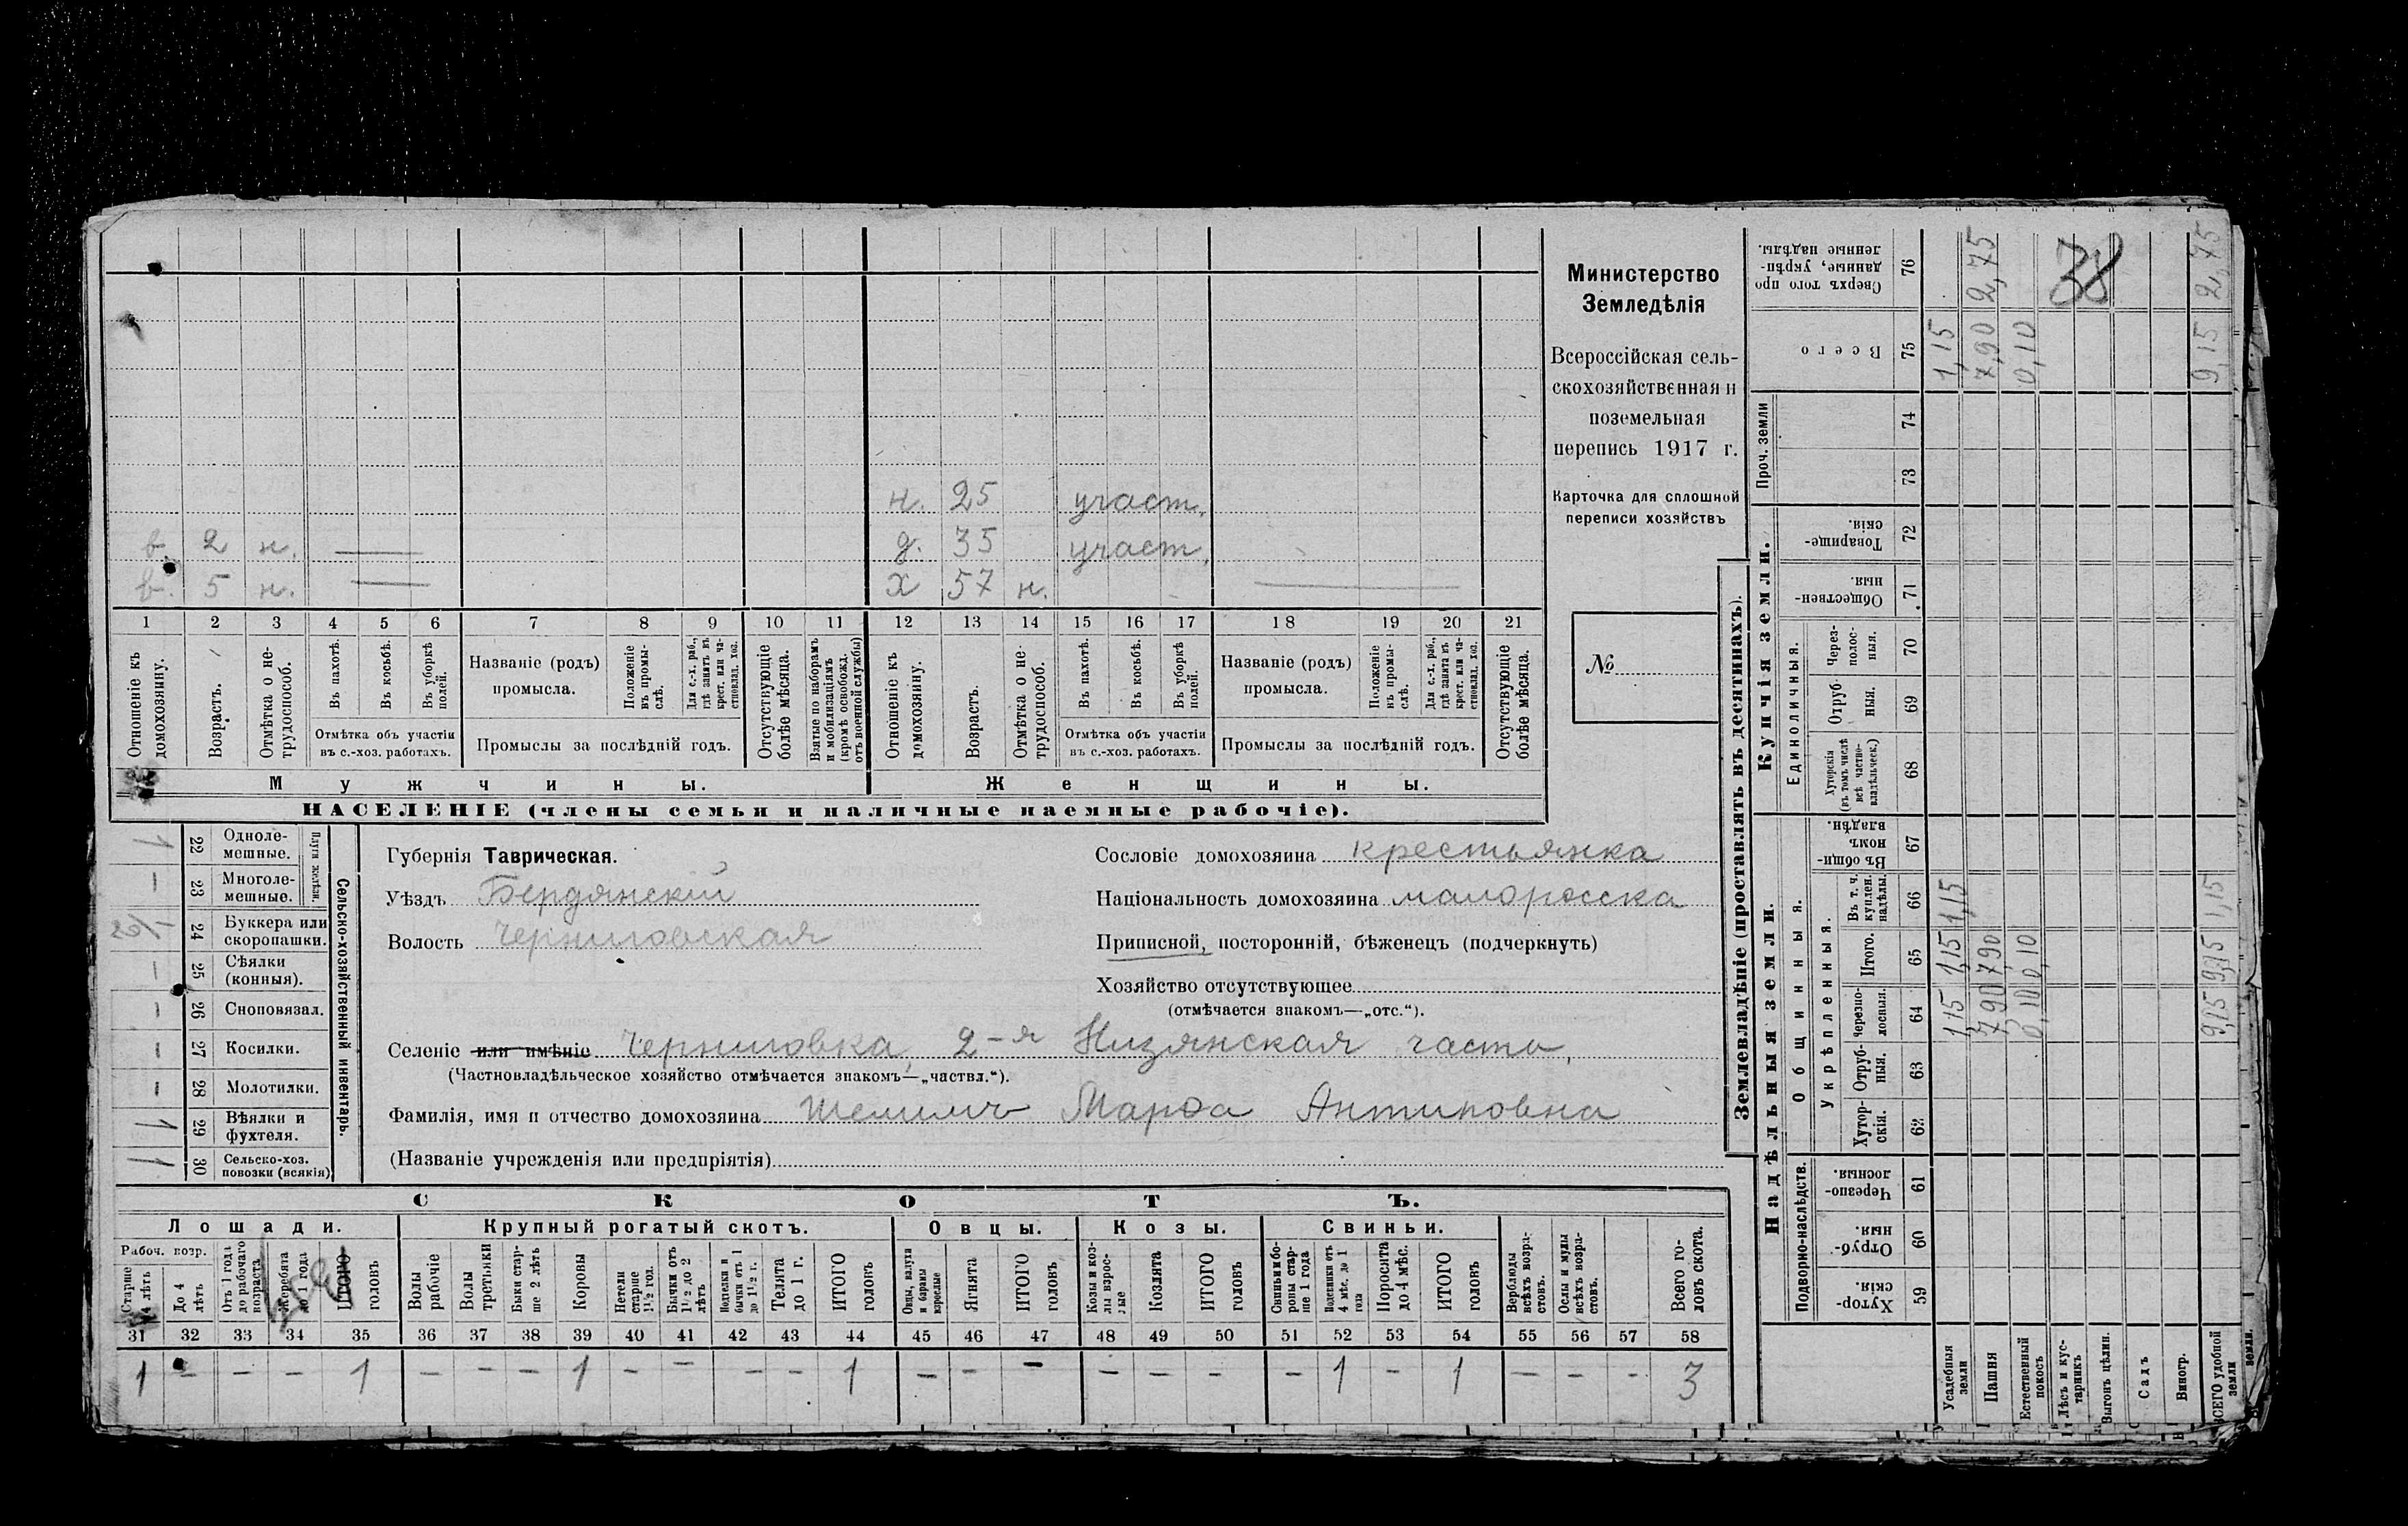 н. 25 участ.
в. 2 н. — д. 35 участ.
в. 5 н. — х 57 н. —
1 2 3 4 5 6 7 8 9 10 11 12 13 14 15 16 17 18 19 20 21
Отношеніе къ домохозяину.
Возрастъ.
Отмѣтка о нетрудоспособ.
Въ пахотѣ.
Въ косьбѣ.
Въ уборкѣ полей.
Отмѣтка объ участіи въ с.-хоз. работахъ.
Названіе (родъ) промысла.
Положеніе въ промыслѣ.
Для с.-х. раб., гдѣ занятъ въ крест. или частновлад. хоз.
Промыслы за послѣдній годъ.
Отсутствующіе болѣе мѣсяца.
Взятые по наборамъ и мобилизаціямъ (кромѣ освобожд. отъ военной службы)
Отношеніе къ домохозяину.
Возрастъ.
Отмѣтка о нетрудоспособ.
Въ пахотѣ.
Въ косьбѣ.
Въ уборкѣ полей.
Отмѣтка объ участіи въ с.-хоз. работахъ.
Названіе (родъ) промысла.
Положеніе въ промыслѣ.
Для с.-х. раб., гдѣ занята въ крест. или частновлад. хоз.
Промыслы за послѣдній годъ.
Отсутствующіе болѣе мѣсяца.
Мужчины. Женщины.
НАСЕЛЕНІЕ (члены семьи и наличные наемные рабочіе).
Министерство
Земледѣлія
Всероссійская сель-
скохозяйственная и
поземельная
перепись 1917 г.
Карточка для сплошной
переписи хозяйствъ
№
1 22 Одноле-мешные.
— 23 Многоле-мешные.
Плуги желѣзн.
24 Буккера или скоропашки.
— 25 Сѣялки (конныя).
— 26 Сноповязал.
— 27 Косилки.
— 28 Молотилки.
1 29 Вѣялки и фухтеля.
1 30 Сельско-хоз. повозки (всякія)
Сельско-хозяйственный инвентарь.
Губернія Таврическая.
Уѣздъ Бердянскій
Волость Черниговская
Сословіе домохозяина крестьянка
Національность домохозяина малоросска
Приписной, посторонній, бѣженецъ (подчеркнуть)
Хозяйство отсутствующее
(отмѣчается знакомъ—„отс.“).
Селеніе или имѣніе Черниговка, 2-я Низянская часть,
(Частновладѣльческое хозяйство отмѣчается знакомъ—„частвл.“).
Фамилія, имя и отчество домохозяина Шелимъ Марѳа Антиповна
(Названіе учрежденія или предпріятія)
СКОТЪ.
Лошади. Крупный рогатый скотъ. Овцы. Козы. Свиньи.
Рабоч. возр.
Старше 4 лѣтъ
До 4 лѣтъ
Отъ 1 года до рабочаго возраста
Жеребята до 1 года
ИТОГО головъ
Волы рабочіе
Волы третьяки
Быки старше 2 лѣтъ
Коровы
Нетели старше 1½ год.
Бычки отъ 1½ до 2 лѣтъ
Нетелки и бычки отъ 1 до 1½ г.
Телята до 1 г.
ИТОГО головъ
Овцы, валухи и бараны взрослые
Ягнята
ИТОГО головъ
Козы и козлы взрослые
Козлята
ИТОГО головъ
Свиньи и боровы старше 1 года
Подсвинки отъ 4 мѣс. до 1 года
Поросята до 4 мѣс.
ИТОГО головъ
Верблюды всѣхъ возрастовъ.
Ослы и мулы всѣхъ возрастовъ.
Всего головъ скота.
31 32 33 34 35 36 37 38 39 40 41 42 43 44 45 46 47 48 49 50 51 52 53 54 55 56 57 58
1 — — — 1 — — — 1 — — — — 1 — — — — — — — 1 — 1 — — — 3
Землевладѣніе (проставлять въ десятинахъ).
Надѣльныя земли.
Купчія земли.
Проч. земли
Подворно-наслѣдств.
Общинныя.
Укрѣпленныя.
Единоличныя.
Сверхъ того проданные, укрѣпленные надѣлы. 76 2,75 38 2,75
Всего 75 1,15 7,90 0,10 9,15
74
73
Товарищескія. 72
Общественныя. 71
Черезполосныя. 70
Отрубныя. 69
Хуторскія (въ томъ числѣ всѣ частновладѣльческ.) 68
Въ общинномъ владѣн. 67
Въ т. ч. куплен. надѣлы. 66 1,15 1,15
Итого. 65 1,15 7,90 0,10 9,15
Черезполосныя. 64 1,15 7,90 0,10 9,15
Отрубныя. 63
Хуторскія. 62
Черезполосныя. 61
Отрубныя. 60
Хуторскія. 59
Усадебныя земли
Пашня
Естественный покосъ
Лѣсъ и кустарникъ
Выгонъ цѣлин.
Садъ
Виногр.
ВСЕГО удобной земли
земли.